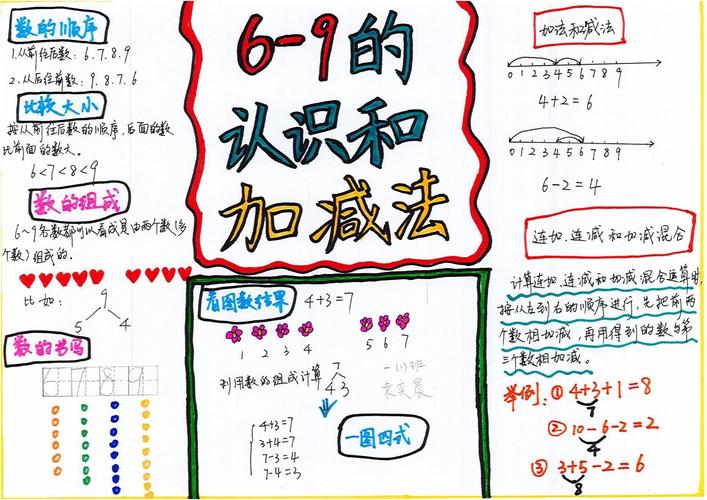 数的顺序
1.从前往后数：6.7.8.9
2.从后往前数：9.8.7.6
比较大小
按从前往后数的顺序,后面的数
比前面的数大。
6<7<8<9
数的组成
6~9各数都可以看成是由两个数(多
个数)组成的。
比如：
9
5 4
数的书写
6 7 8 9
6-9的
认识和
加减法
看图数结果
4+3=7
1 2 3 4 5 6 7
利用数的组成计算
7
4 3
一(1)班
4+3=7
3+4=7
7-3=4
7-4=3
一图四式
加法和减法
0 1 2 3 4 5 6 7 8 9
4+2=6
0 1 2 3 4 5 6 7 8 9
6-2=4
连加.连减和加减混合
计算连加.连减和加减混合运算时,
按从左到右的顺序进行,先把前两
个数相加减，再用得到的数与第
三个数相加减。
举例：① 4+3+1=8
7
② 10-6-2=2
4
③ 3+5-2=6
8